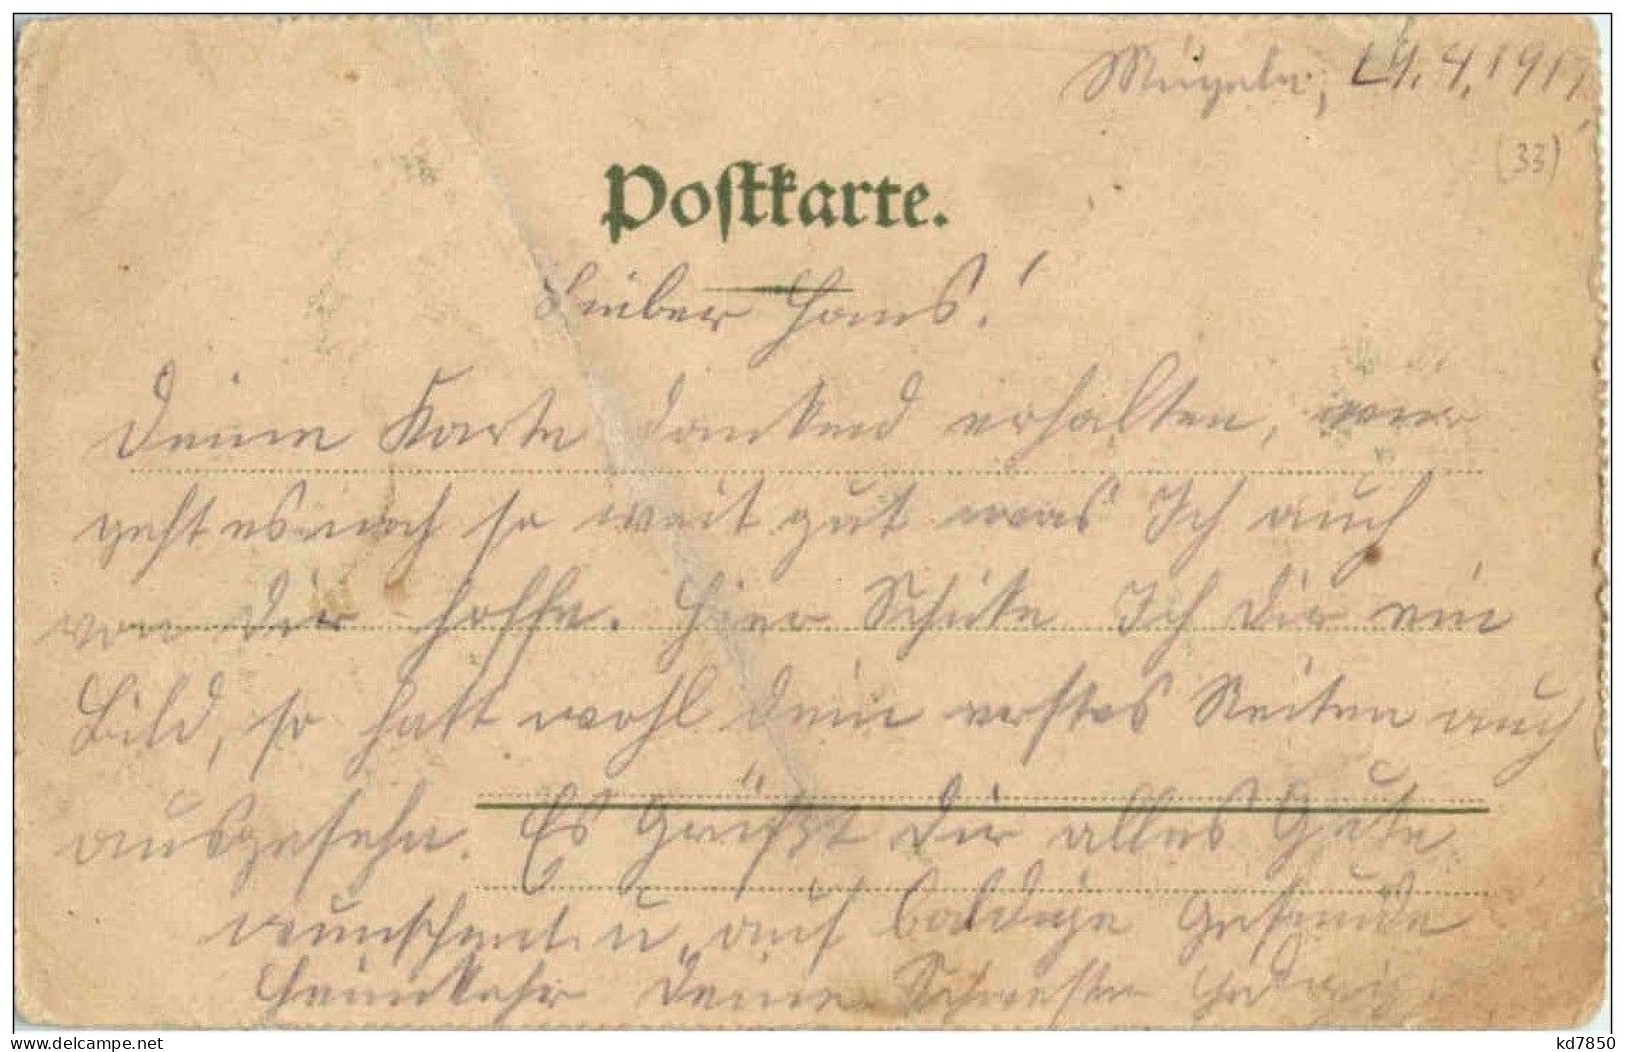 Mügeln, 29.4.1917
(33)
Postkarte.
Lieber Hans!
Deine Karte dankend erhalten, mir
geht es noch so weit gut was Ich auch
von Dir hoffe. Hier Schike Ich Dir ein
Bild, so hatt wohl dein erstes Reiten auch
ausgesehn. Es Grüßt Dir alles Gute
wünschent u. auf baldige Gesunde
Heimkehr Deine Schwester Hedwig.
www.delcampe.net
kd7850